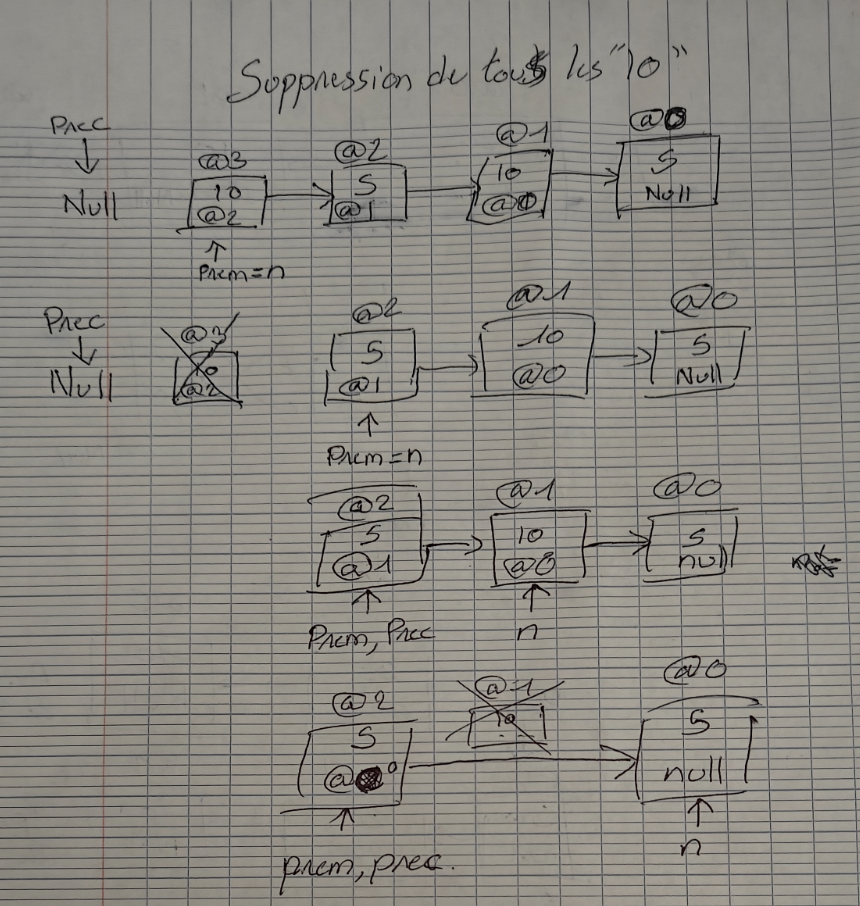 Suppression de tous les "10"
Prec
Null
@3
10
@2
Prem = n
@2
5
@1
@1
10
@0
@0
5
Null
Prec
Null
@3
@2
@2
5
@1
Prem = n
@1
10
@0
@0
5
Null
@2
5
@1
Prem, Prec
@1
10
@0
n
@0
5
null
@2
5
@0
prem, prec.
@1
10
@0
5
null
n